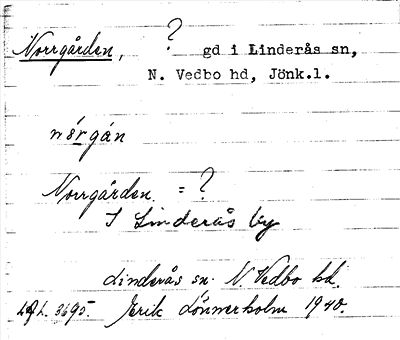 Norrgården, ? gd i Linderås sn,
N. Vedbo hd, Jönk.l.
nórgán
Norrgården = ?
I Linderås by
Linderås sn. N. Vedbo hd.
3695. Erik Lönnerholm 1940.